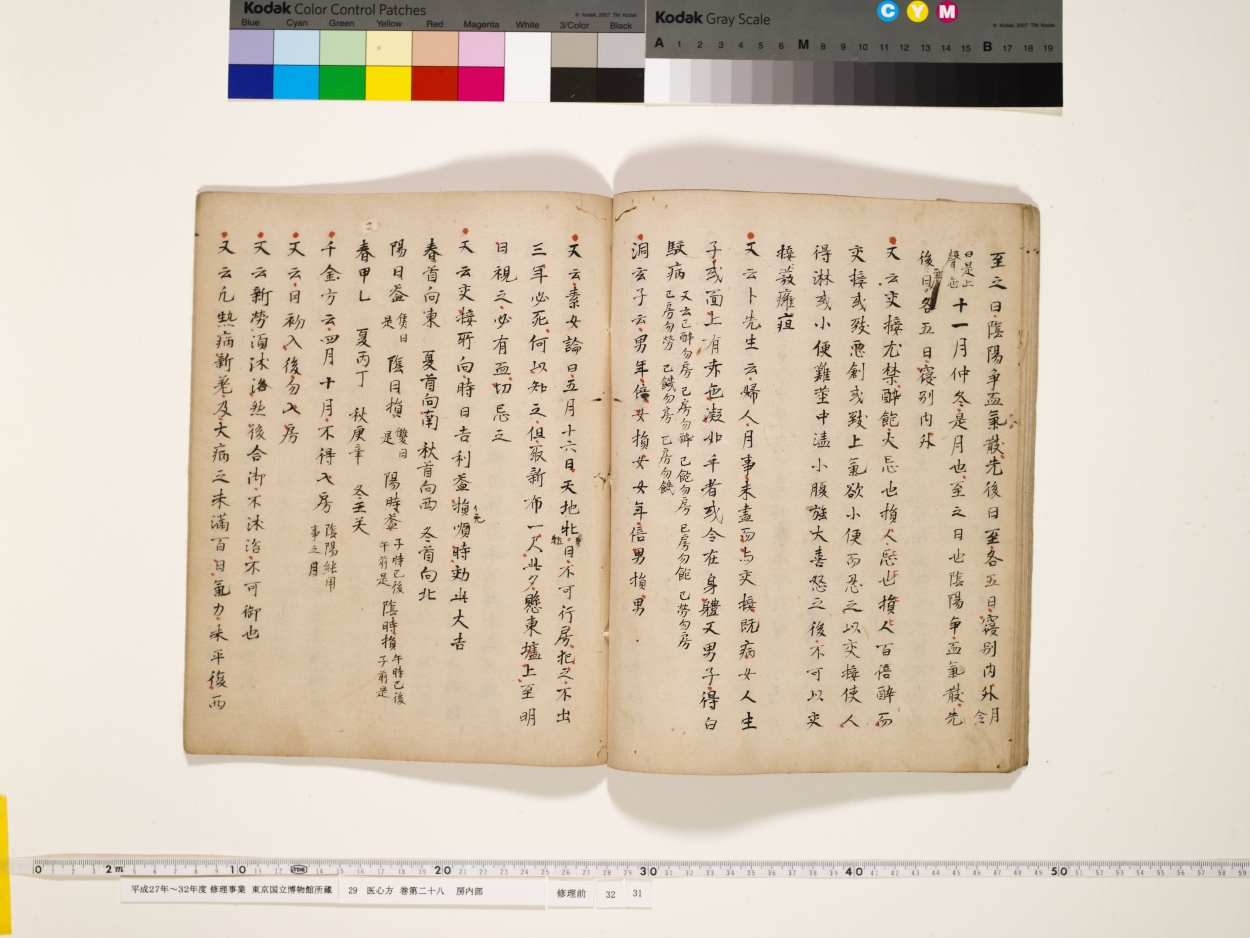 Kodak Color Control Patches
© Kodak, 2007 TM: Kodak
Blue Cyan Green Yellow Red Magenta White 3/Color Black
Kodak Gray Scale
C Y M
© Kodak, 2007 TM: Kodak
A 1 2 3 4 5 6 M 8 9 10 11 12 13 14 15 B 17 18 19
至之日陰陽争血氣散先後日至各五日寢別内外月令
曰是上聲也十一月仲冬是月也至之日也陰陽争血氣散先
後日各五日寢別内外
又云交接尤禁醉飽大忌也損人百倍醉而
交接或致悪創或致上氣欲小便而忍之以交接使人
得淋或小便難莖中濇小腹強大喜怒之後不可以交
接發癰疽
又云卜先生云婦人月事未盡而与交接既病女人生
子或面上有赤色凝如手者或令在身體又男子得白
駮病又云已醉勿房已房勿醉已飽勿房已房勿飽已勞勿房
已房勿勞已饑勿房已房勿饑
洞玄子云男年倍女損女女年倍男損男
又云素女論曰五月十六日天地牝牡日不可行房犯之不出
三年必死何以知之但取新布一尺此夕懸東墻上至明
日視之必有血切忌之
又云交接所向時日吉利益損順時効此大吉
春首向東 夏首向南 秋首向西 冬首向北
陽日益隻日是 陰日損雙日是 陽時益子時已後午前是 陰時損午時已後子前是
春甲乙 夏丙丁 秋庚辛 冬壬癸
千金方云四月十月不得入房陰陽純用事之月
又云日初入後勿入房
又云新勞須沐浴然後合御不沐浴不可御也
又云凡熱病新差及大病之未滿百日氣力未平復而
0 2m 10 20 30 40 50
平成27年〜32年度 修理事業 東京国立博物館所蔵 29 医心方 巻第二十八 房内部 修理前 32 31